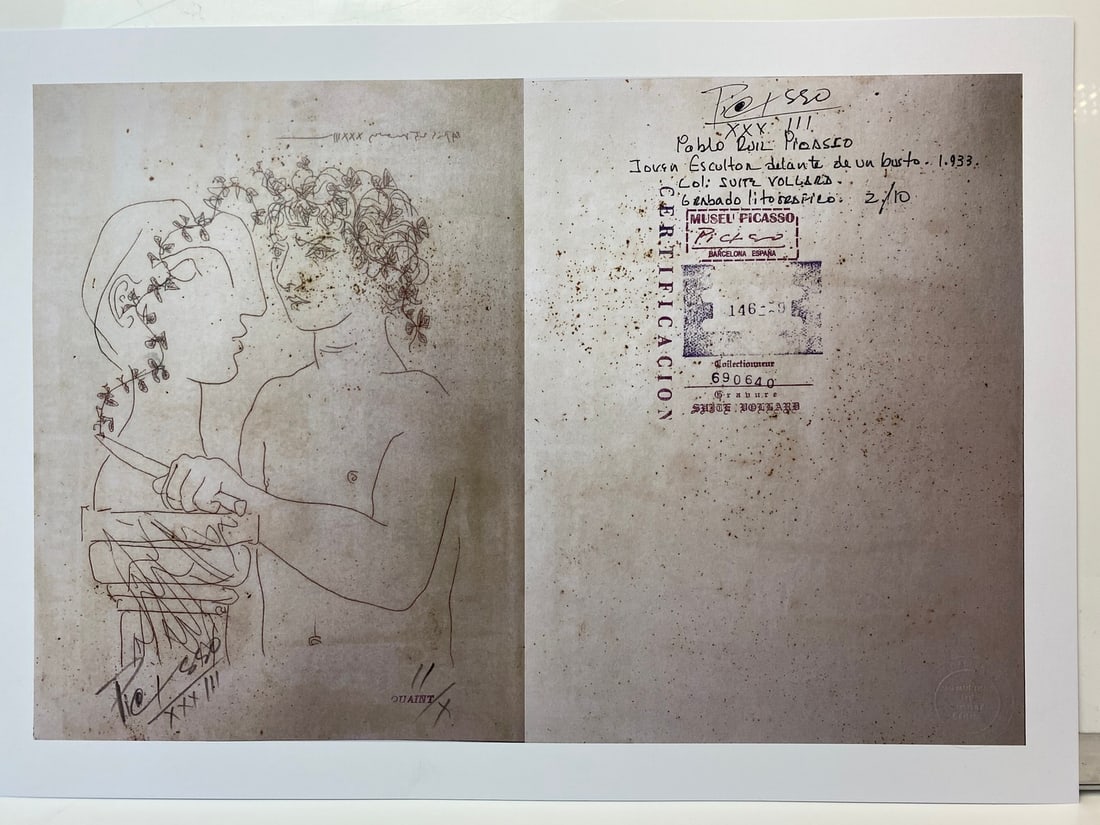 Picasso
XXXIII
11/X
QUAINT
Picasso
XXXIII
Pablo Ruiz Picasso
Joven Escultor delante de un busto. 1.933.
Col: SUITE VOLLARD.
Grabado litografico. 2/10
CERTIFICACION
MUSEU PiCASSO
Picasso
BARCELONA ESPAÑA
146
Collectionneur
690640
Gravure
SUITE VOLLARD